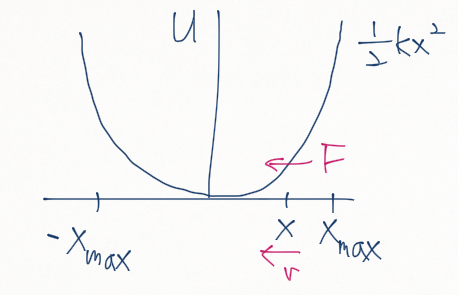 U
½kx²
F
-x_max
x
x_max
v